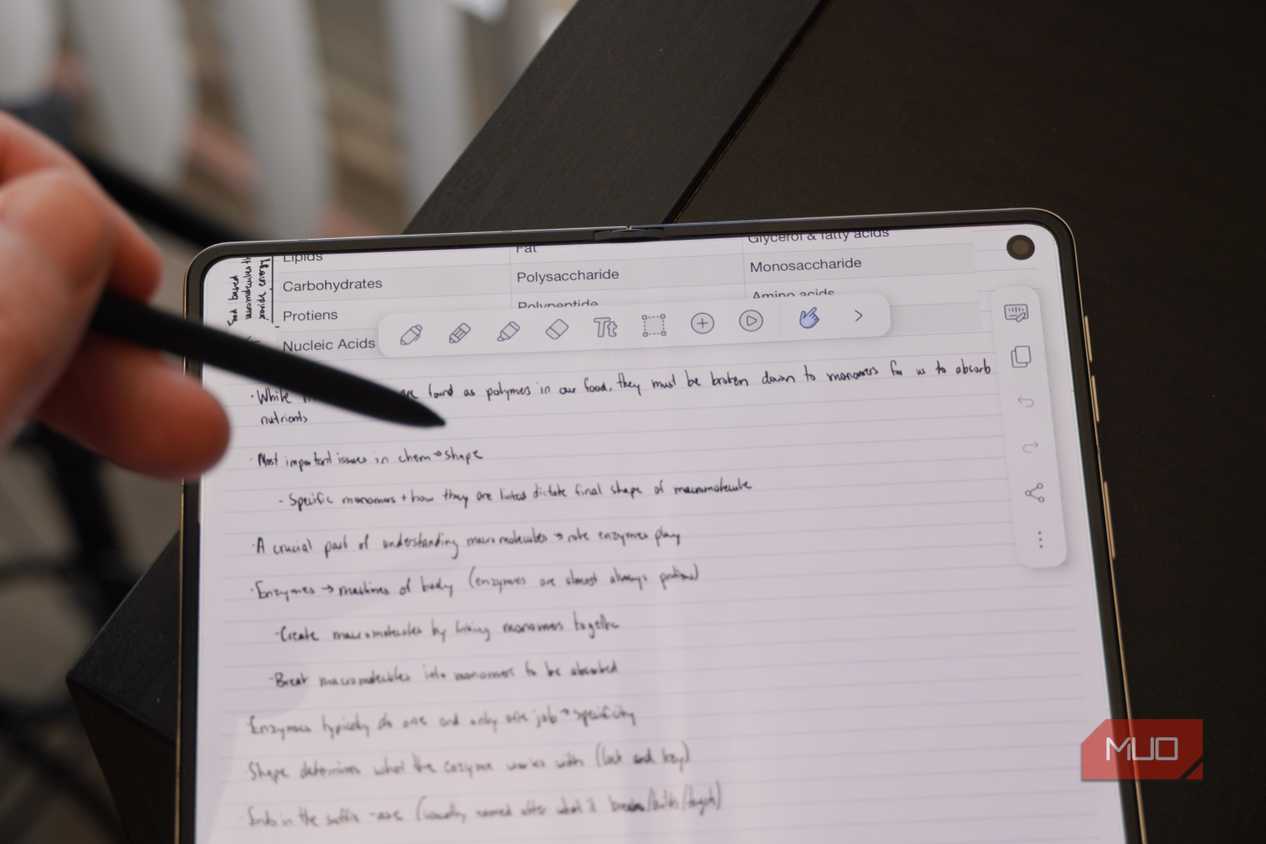 Lipids Fat Glycerol & fatty acids
Carbohydrates Polysaccharide Monosaccharide
Protiens Polypeptide Amino acids
Nucleic Acids
food based
macromolecules
Tt
· While are found as polymers in our food, they must be broken down to monomers for us to absorb
nutrients
· Most important issues in chem → shape
- Specific monomers + how they are linked dictate final shape of macromolecule
· A crucial part of understanding macromolecules → role enzymes play
· Enzymes → machines of body (enzymes are almost always proteins)
- Create macromolecules by linking monomers together
- Break macromolecules into monomers to be absorbed
Enzymes typically do one and only one job → specificity
Shape determines what the enzyme works with (lock and key)
Ends in the suffix -ase (usually named after what it breaks/builds/targets)
MUO